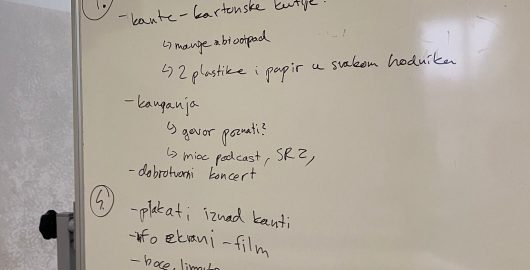 1.
- kante - kartonske kutije
↳ manje za biootpad
↳ 2 plastike i papir u svakom hodniku
- kampanja
↳ govor poznati?
↳ mioc podcast, SRZ,
- dobrotvorni koncert
- plakati iznad kanti
ekrani - film
- boce,